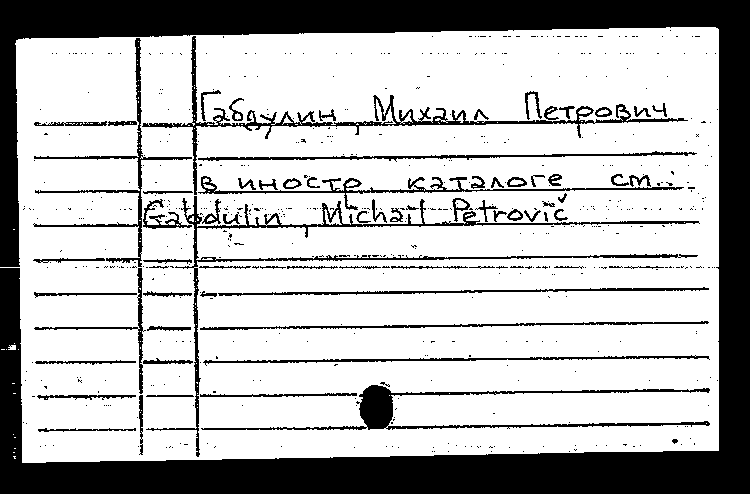 Габдулин, Михаил Петрович
в иностр. каталоге см.:
Gabdulin, Michail Petrovič